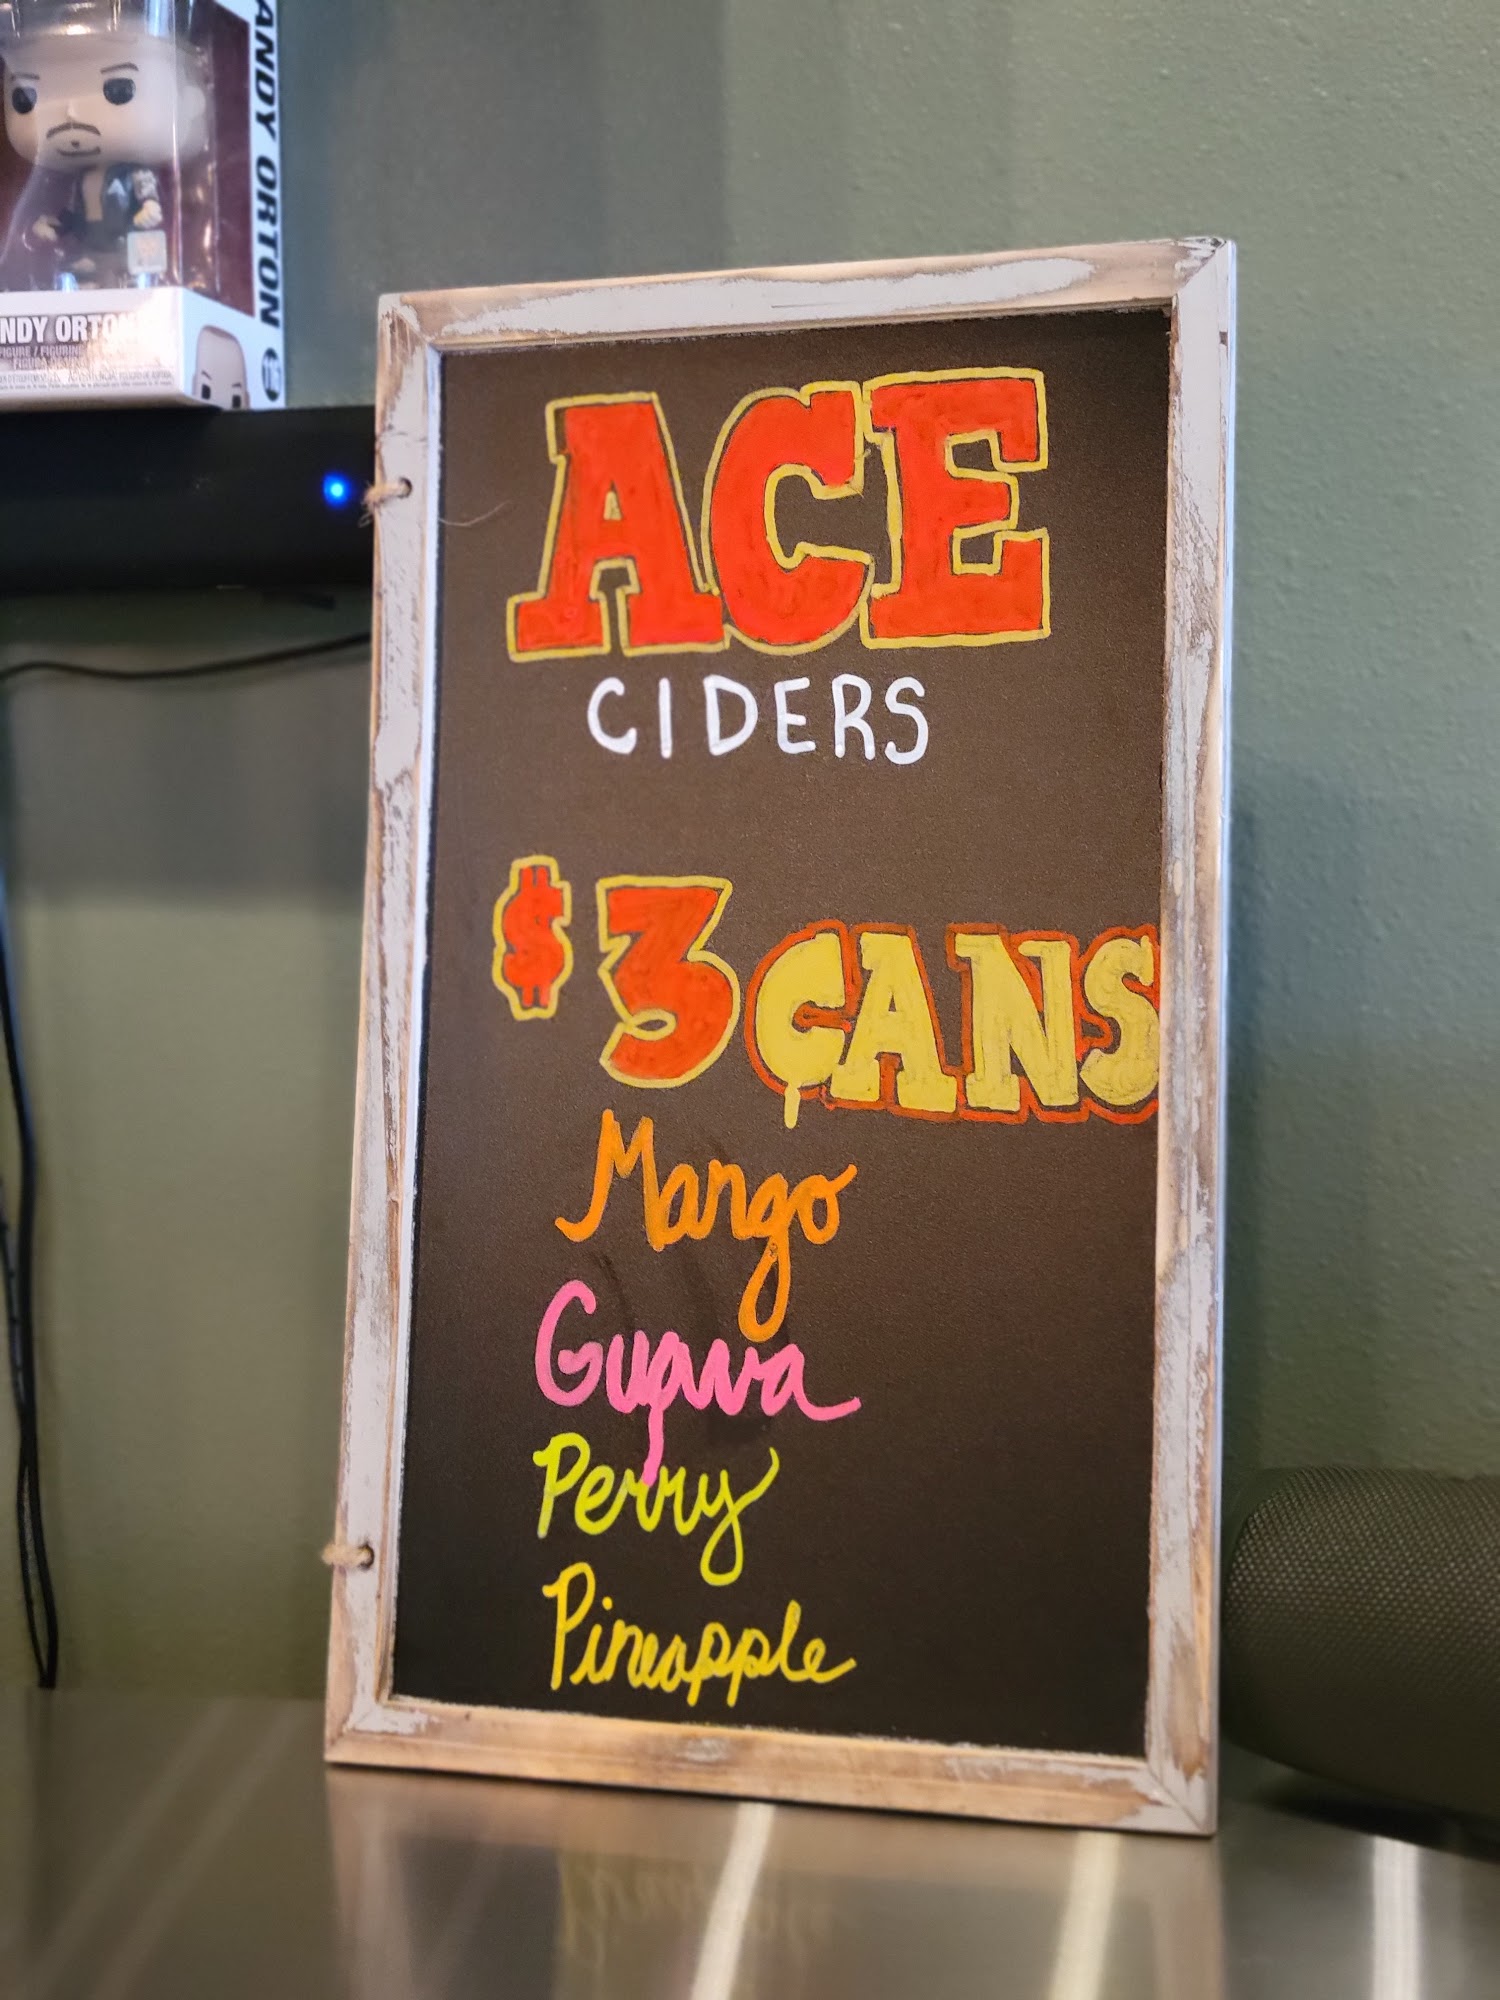 ANDY ORTON
NDY ORTON
ACE
CIDERS
$3 CANS
Mango
Guava
Perry
Pineapple